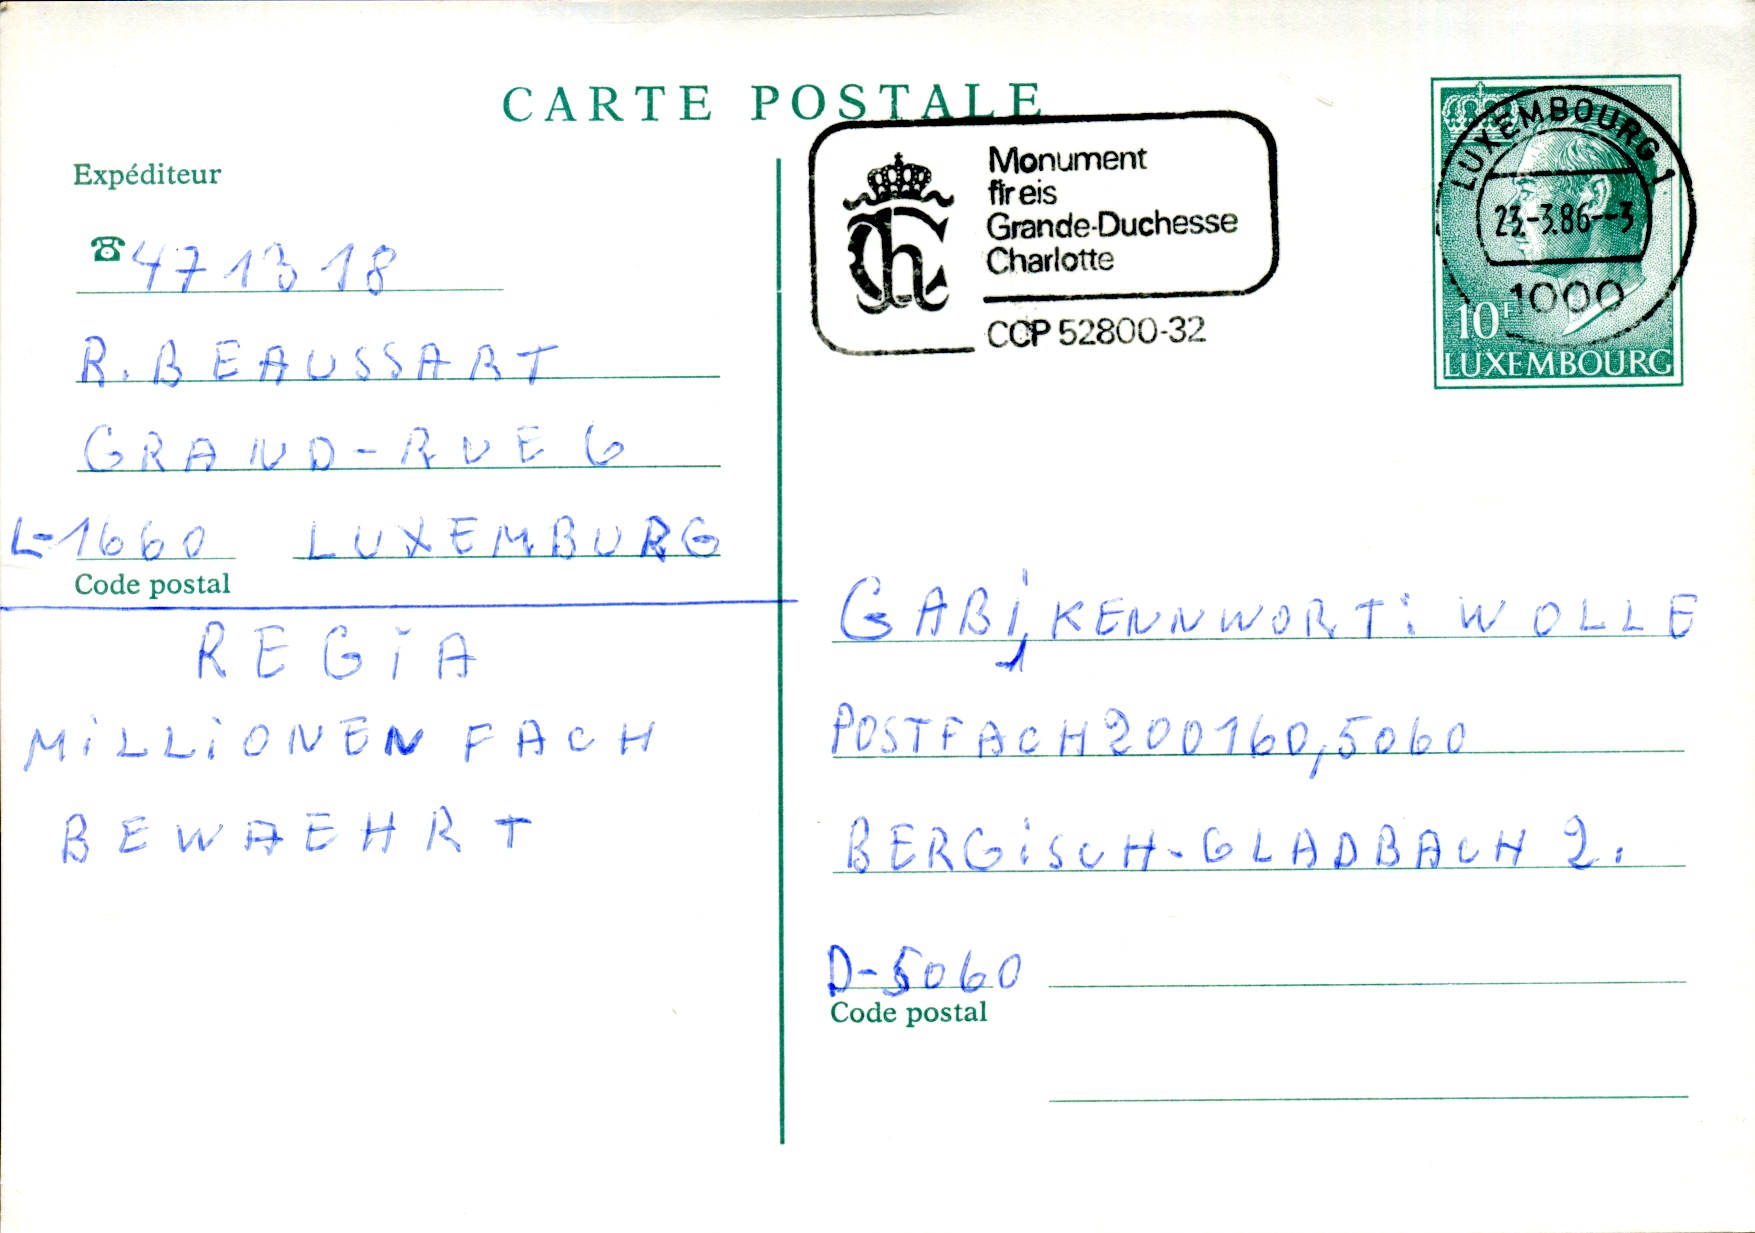 CARTE POSTALE
Expéditeur
☎ 47 13 18
R. BEAUSSART
GRAND-RUE 6
L-1660 LUXEMBURG
Code postal
REGiA
MiLLiONENFACH
BEWAEHRT
Monument
fir eis
Grande-Duchesse
Charlotte
CCP 52800-32
LUXEMBOURG 1
23.-3.86--3
1000
10F
LUXEMBOURG
GABi, KENNWORT: WOLLE
POSTFACH 200160, 5060
BERGiSCH-GLADBACH 2.
D-5060
Code postal